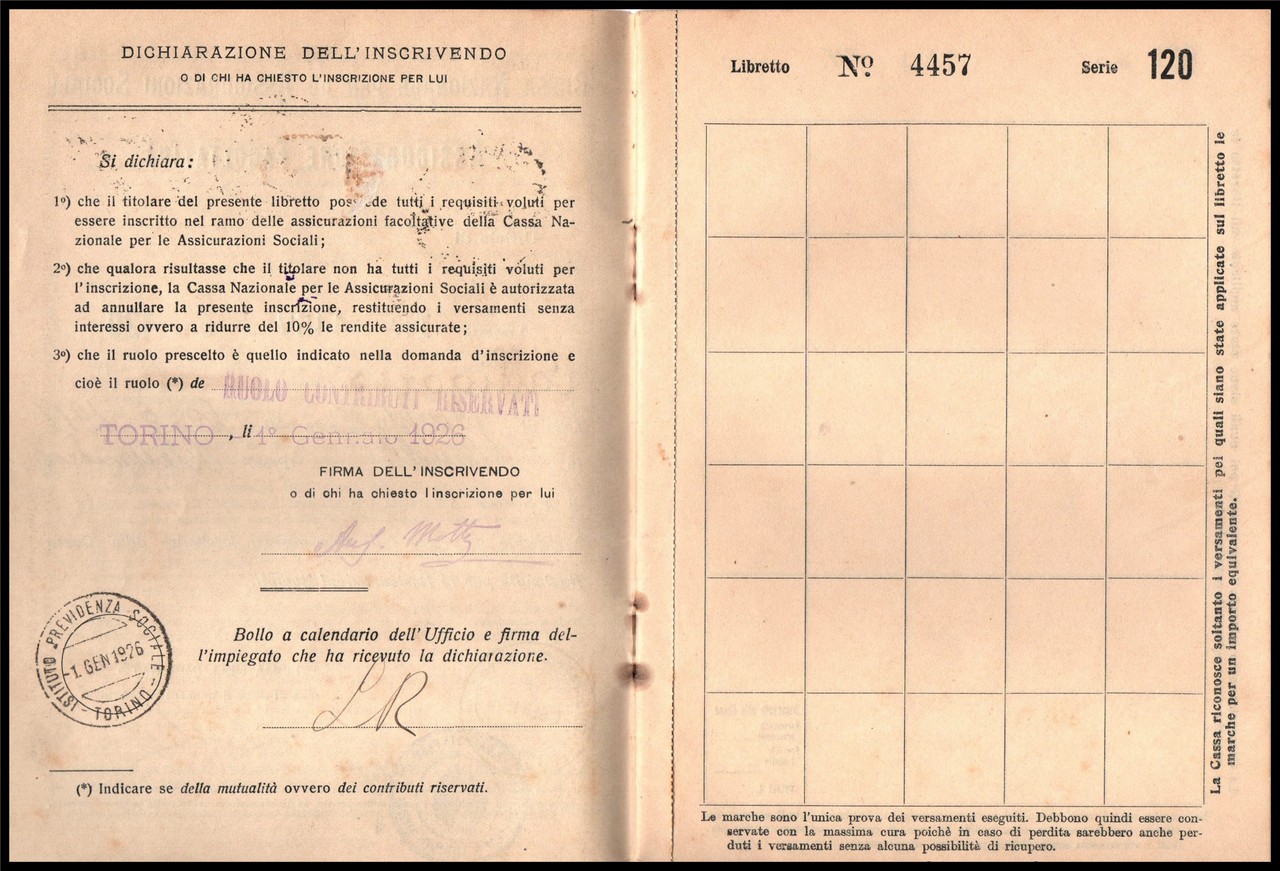 DICHIARAZIONE DELL'INSCRIVENDO
O DI CHI HA CHIESTO L'INSCRIZIONE PER LUI
Si dichiara:
1º) che il titolare del presente libretto pos ede tutti i requisiti voluti per
essere inscritto nel ramo delle assicurazioni facoltative della Cassa Na-
zionale per le Assicurazioni Sociali;
2º) che qualora risultasse che il titolare non ha tutti i requisiti voluti per
l'inscrizione, la Cassa Nazionale per le Assicurazioni Sociali è autorizzata
ad annullare la presente inscrizione, restituendo i versamenti senza
interessi ovvero a ridurre del 10% le rendite assicurate;
3º) che il ruolo prescelto è quello indicato nella domanda d'inscrizione e
cioè il ruolo (*) de RUOLO CONTRIBUTI RISERVATI
TORINO, li 1º Gennaio 1926
FIRMA DELL'INSCRIVENDO
o di chi ha chiesto l inscrizione per lui
ISTITUTO PREVIDENZA SOCIALE - TORINO -
-1. GEN 1926
Bollo a calendario dell'Ufficio e firma del-
l'impiegato che ha ricevuto la dichiarazione.
LR
(*) Indicare se della mutualità ovvero dei contributi riservati.
Libretto Nº 4457 Serie 120
La Cassa riconosce soltanto i versamenti pei quali siano state applicate sul libretto le
marche per un importo equivalente.
Le marche sono l'unica prova dei versamenti eseguiti. Debbono quindi essere con-
servate con la massima cura poichè in caso di perdita sarebbero anche per-
duti i versamenti senza alcuna possibilità di ricupero.